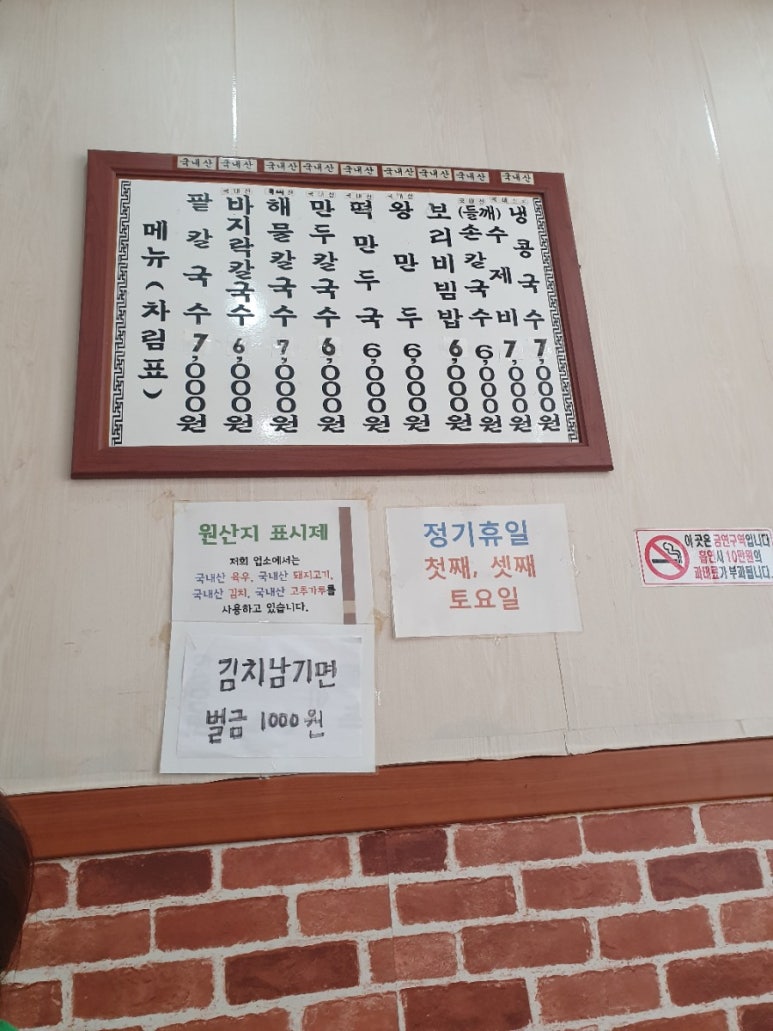 국내산 국내산 국내산 국내산 국내산 국내산 국내산 국내산 국내산
메뉴(차림표)
팥칼국수 7,000원
국내산
바지락칼국수 6,000원
해물칼국수 7,000원
만두칼국수 6,000원
국내산
떡만두국 6,000원
국내산
왕만두 6,000원
보리비빔밥 6,000원
(들깨)
손칼국수 6,000원
수제비 7,000원
냉콩국수 7,000원
원산지 표시제
저희 업소에서는
국내산 육우, 국내산 돼지고기,
국내산 김치, 국내산 고추가루를
사용하고 있습니다.
정기휴일
첫째, 셋째
토요일
이 곳은 금연구역입니다
흡연시 10만원의
과태료가 부과됩니다
김치남기면
벌금 1000원